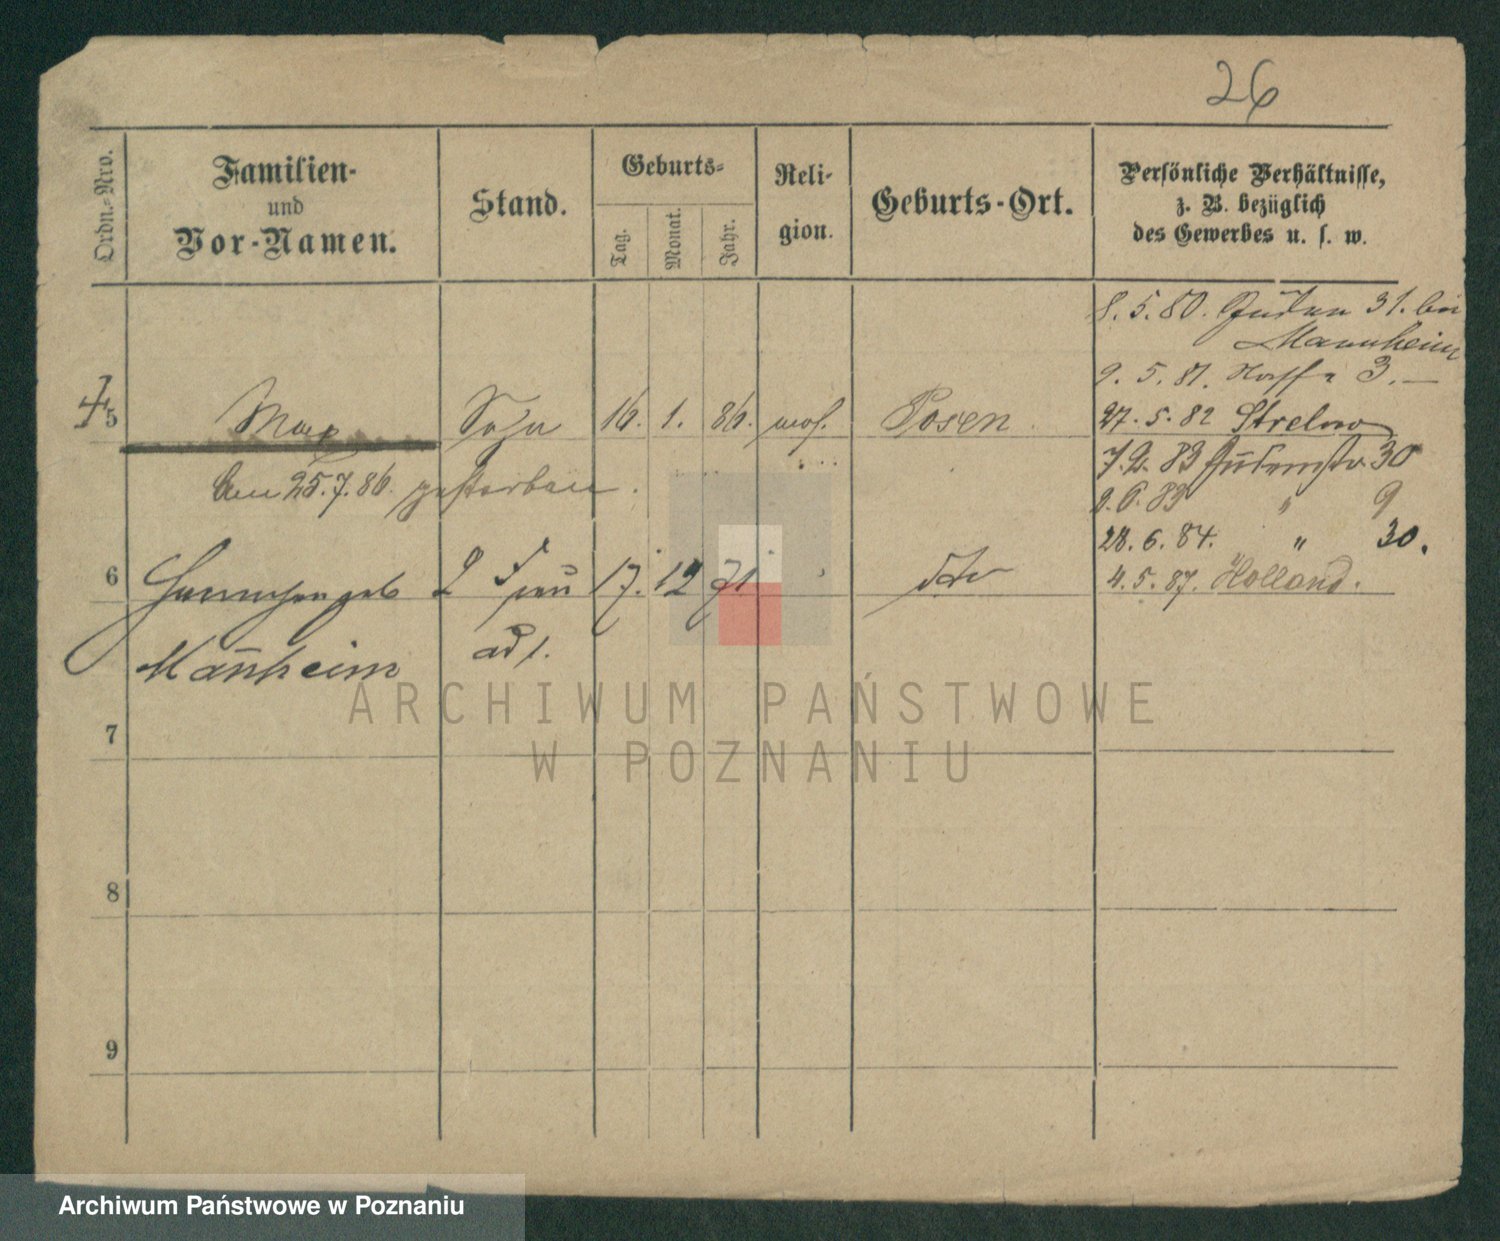 26
Ordn.-Nro.
Familien-
und
Vor-Namen.
Stand.
Geburts-
Tag.
Monat.
Jahr.
Reli-
gion.
Geburts-Ort.
Persönliche Verhältnisse,
z. B. bezüglich
des Gewerbes u. s. w.
8. 5. 80. Juden 31. bei
Mannheim
9. 5. 81. 3. —
5 Max Sohn 16. 1. 86. mos. Posen
27. 5. 82 Strelno
am 25. 7. 86. gestorben.
7. 2. 83 Judenstr. 30
9. 6. 83 " 9
28. 6. 84. " 30.
6 geb 2 Frau 17. 12 71 dto
4. 5. 87. Holland.
Manheim ad 1.
7
8
9
ARCHIWUM PAŃSTWOWE
W POZNANIU
Archiwum Państwowe w Poznaniu